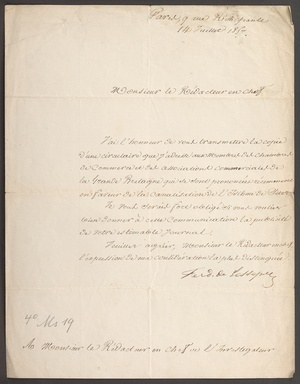 Paris, 9 rue Richepanse
14 Juillet 185
Monsieur le Rédacteur en chef
J'ai l'honneur de vous transmettre la copie
d'une circulaire que j'adresse aux membres des chambres
de Commerce et des associations commerciales de
la Grande Bretagne qui se sont prononcées
en faveur de la Canalisation de l'Isthme de Suez.
Je vous serais fort obligé de vous vouloir
bien donner à cette Communication la publicité
de votre estimable Journal.
Veuillez agréer, Monsieur le Rédacteur en chef,
l'expression de ma considération la plus distinguée.
Ferd. de Lesseps
4o Ms 19
A Monsieur le Rédacteur en Chef de l'Investigateur